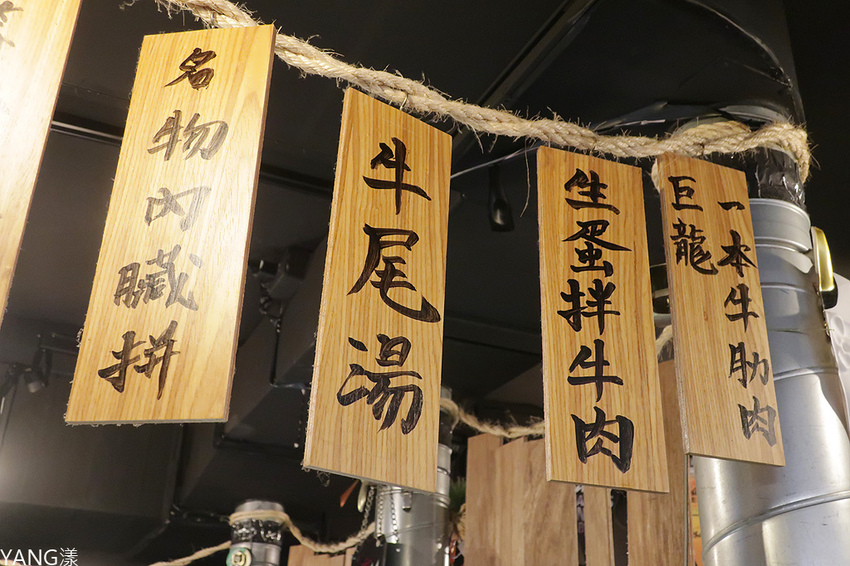 名物內臟拼
牛尾湯
生蛋拌牛肉
一本牛肋肉
巨龍
YANG漾